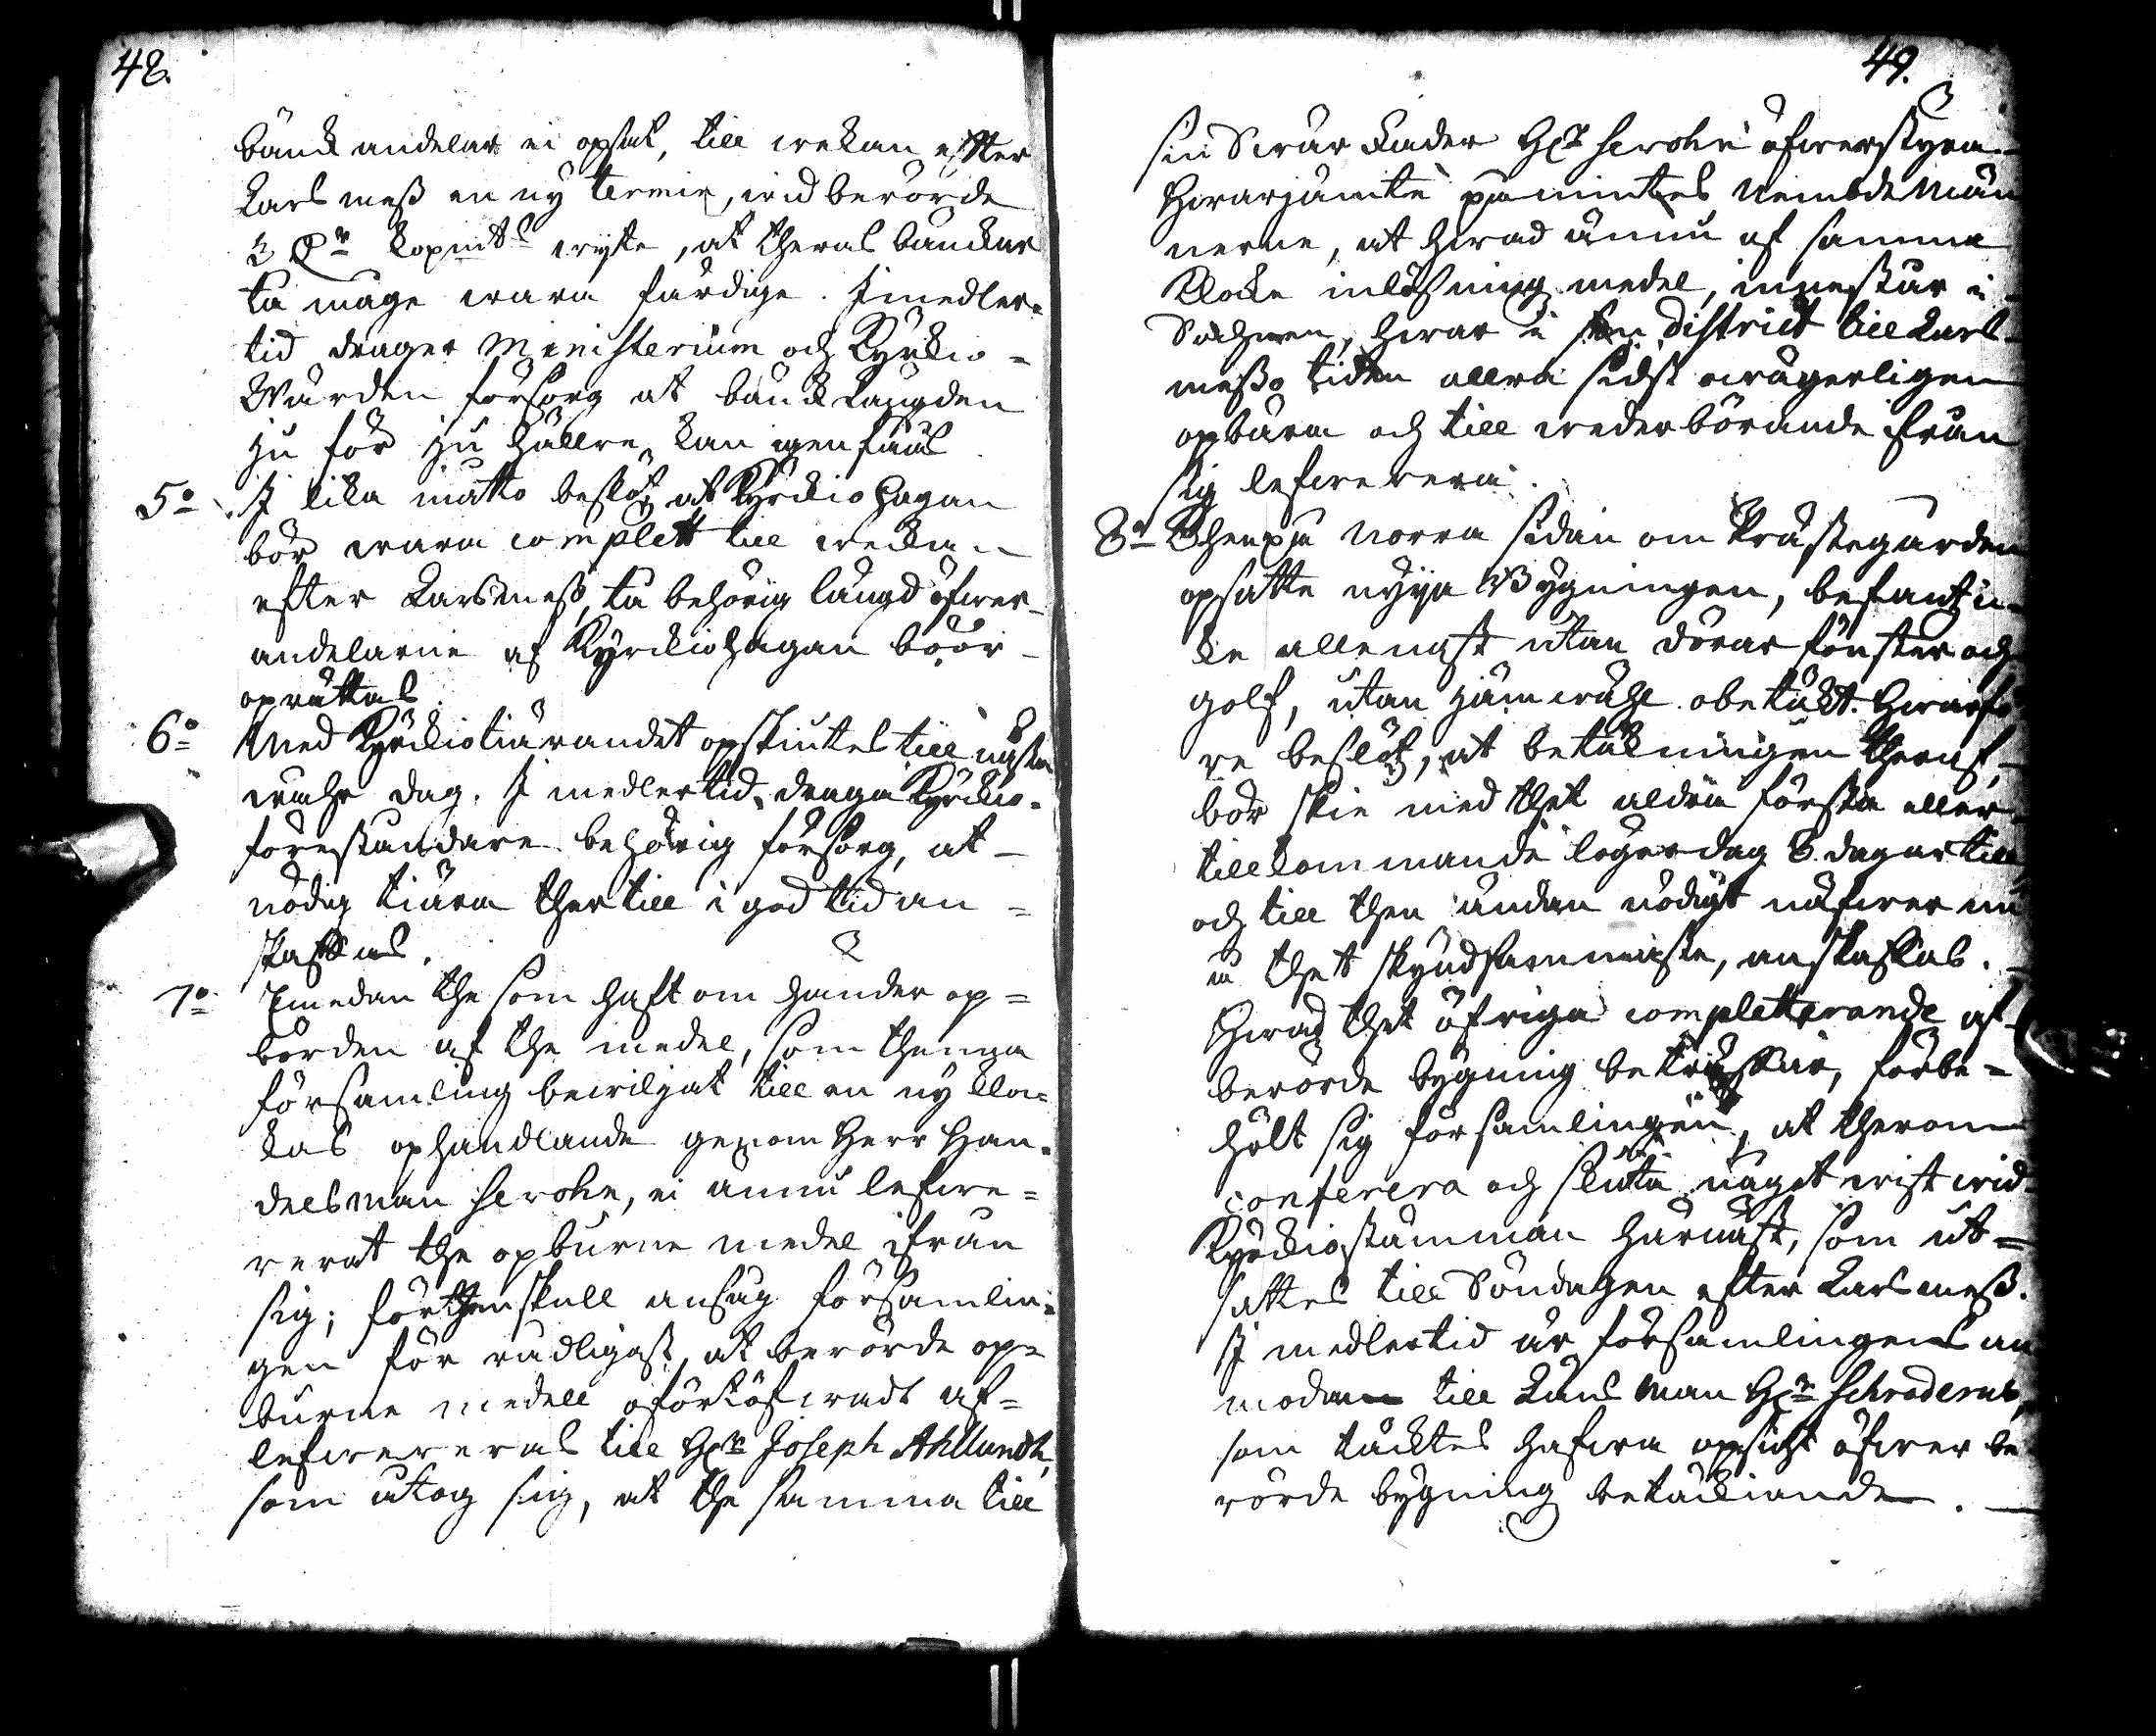 48.
bänck andelar ei opsat, till wekan efter
Larsmess en ny termin, wid berörde
3 Dr kopmts wijte, at theras bänckar
tå måge wara färdige. Imedler-
tid drager Ministerium och Kyrkio-
Wärden försorg at bänck Längden
ju för ju hällre kan igenfåås
5o I lika måtto beslöts at KyrckioHagan
bör wara complett till weckan
efter Larsmess, tå behörig längd öfwer
andelarne af Kyrckiohagan böör
oprättas.
6o Med Kyrckiotiärandet opskiutes till nästa
wahr dag. I medlertid draga Kyrckio-
föreståndare behörig försorg, at
nödig tiära ther till i god tid an-
skaffas.
7o Emedan the som haft om händer op-
börden af the medel, som thenna
församling bewiljat till en ny klo-
kas ophandlande genom Herr Han-
delsman Serohn, ei ännu lefwe-
rerat the opburne medel ifrån
sig; för then skull ansåg församlin-
gen för rådligast, at berörde op-
burne medell oförtöfwadt af-
lefwereras till Hr Joseph Ahllundh,
som åtog sig, at the samma till
49.
sin Swär Fader Hr Serohn öfwerstyra
Hwarjämte påmintes Nembdemän
nerne, at hwad ännu af samma
Klocke inlösning medel, innestår i
Sochnen, hwar i sin District till Lars-
messo tiden allra sidst owägerligen
opbära och till wederbörande ifrån
sig lefwerera.
8o Then på Norra sidan om Prästegården
opsatte nyja Bygningen, befants ic-
ke allenast utan dörar fönster och
golf, utan jämwähl obetäckt. Hwarfö
re beslöts, at betäkningen theraf,
bör skie med thet aldra första eller
tillkommande lögerdag 8. dagar till
och till then ändan nödigt näfwer nu
på thet skyndsammaste, anskaffas.
Hwad thet öfriga completterande af
berörde bygning beträffar, förbe-
hölt sig församlingen, at therom
conferera och sluta något wist wid
Kyrckiostämman härnäst, som ut-
sattes till Söndagen efter Larsmess.
I medlertid är församlingens an
modan till Läns Man Hr Schroderus,
som täcktes hafwa opsicht öfwer be-
rörde bygning betäckiande.